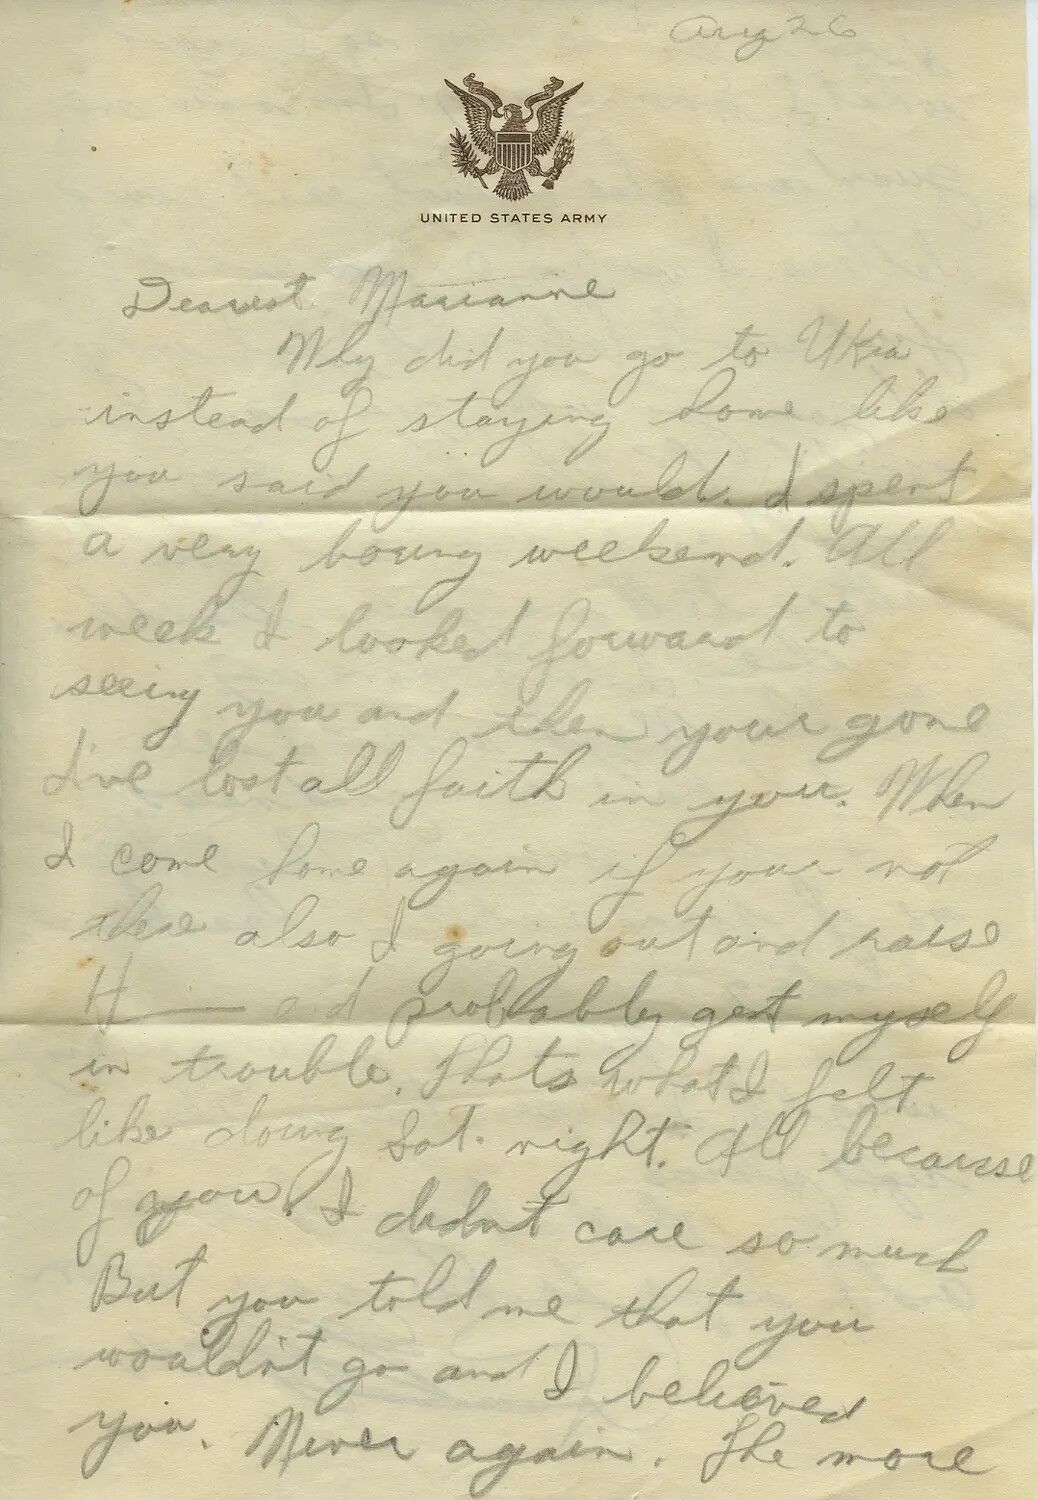 Aug 26
UNITED STATES ARMY
Dearest Marianne
Why did you go to Ukia
instead of staying home like
you said you would. I spent
a very boring weekend. All
week I looked forward to
seeing you and then your gone
I've lost all faith in you. When
I come home again if your not
there also I going out and raise
H—— and probably get myself
in trouble. Thats what I felt
like doing Sat. night. All because
of you. I didn't care so much
But you told me that you
wouldn't go and I believed
you. Never again. The more